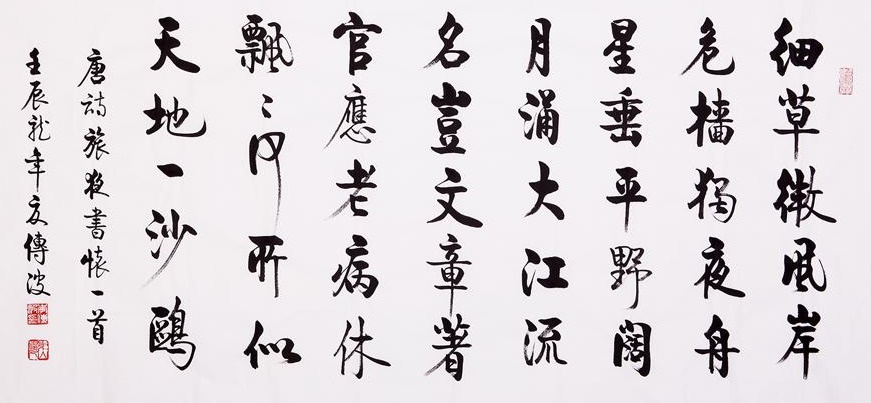 細草微風岸
危檣獨夜舟
星垂平野闊
月涌大江流
名豈文章著
官應老病休
飄〻何所似
天地一沙鷗
唐詩旅夜書懷一首
壬辰龍年夏傳波